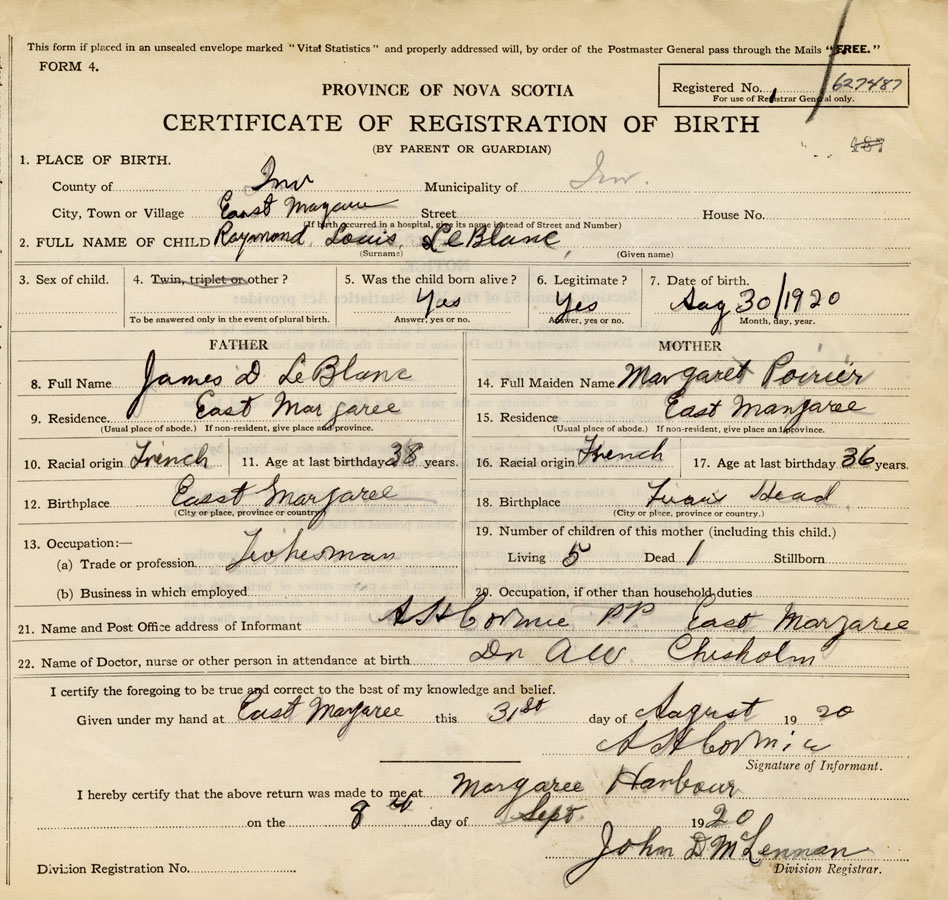 This form if placed in an unsealed envelope marked "Vital Statistics" and properly addressed will, by order of the Postmaster General pass through the Mails "FREE."
FORM 4.
Registered No. 627487
For use of Registrar General only.
PROVINCE OF NOVA SCOTIA
CERTIFICATE OF REGISTRATION OF BIRTH
(BY PARENT OR GUARDIAN)
1. PLACE OF BIRTH.
County of Inv Municipality of Inv.
City, Town or Village East Margaree Street House No.
(If birth occurred in a hospital, give its name instead of Street and Number)
2. FULL NAME OF CHILD Raymond Louis LeBlanc
(Surname) (Given name)
3. Sex of child. 4. Twin, triplet or other? 5. Was the child born alive? 6. Legitimate? 7. Date of birth.
Yes Yes Aug 30/1920
To be answered only in the event of plural birth. Answer, yes or no. Answer, yes or no. Month, day, year.
FATHER MOTHER
8. Full Name James D LeBlanc 14. Full Maiden Name Margaret Poirier
9. Residence. East Margaree 15. Residence East Margaree
(Usual place of abode.) If non-resident, give place and province. (Usual place of abode.) If non-resident, give place and province.
10. Racial origin French 11. Age at last birthday 38 years. 16. Racial origin French 17. Age at last birthday 36 years.
12. Birthplace East Margaree 18. Birthplace Head
(City or place, province or country) (City or place, province or country.)
13. Occupation:— 19. Number of children of this mother (including this child.)
(a) Trade or profession Fisherman Living 5 Dead 1 Stillborn
(b) Business in which employed 20. Occupation, if other than household duties
21. Name and Post Office address of Informant A H Cormie PP East Margaree
22. Name of Doctor, nurse or other person in attendance at birth Dr A W Chisholm
I certify the foregoing to be true and correct to the best of my knowledge and belief.
Given under my hand at East Margaree this 31st day of August 1920
A H Cormie
Signature of Informant.
I hereby certify that the above return was made to me at Margaree Harbour
on the 8th day of Sept. 1920
John D McLennan
Division Registration No. Division Registrar.